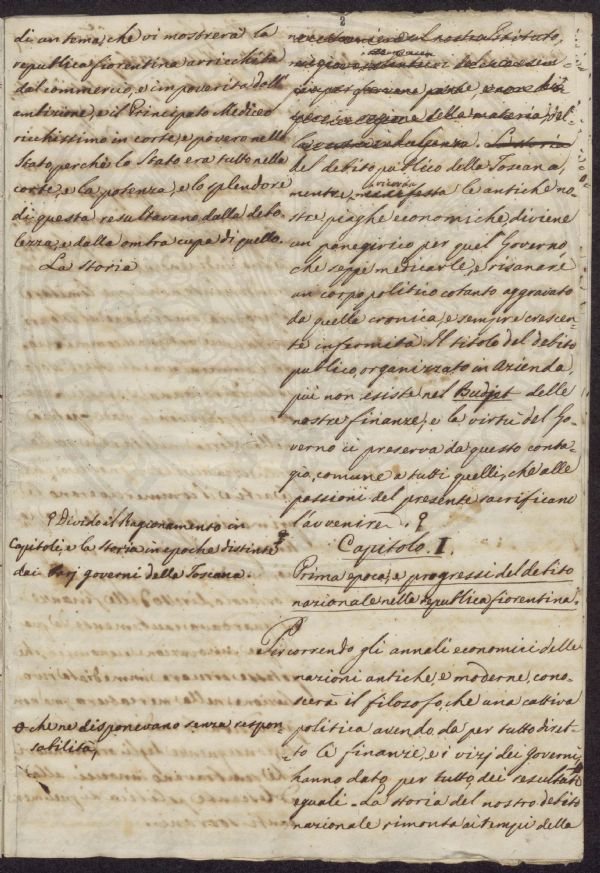 2
di un tema, che vi mostrerà la
republica fiorentina arricchita
dal commercio, e impoverita dall'
ambizione, e il Principato Mediceo
ricchissimo in corte, e povero nello
Stato, perchè lo Stato era tutto nella
corte, e la potenza, e lo splendore
di questa resultavano dalla debo-
lezza, e dalla ombra cupa di quello.
La storia
nostro Istituto,
della materia, del-
La storia
del debito publico della Toscana,
mentre ricorda le antiche no-
stre piaghe economiche diviene
un panegirico per quel Governo,
che seppe medicarle, e risanare
un corpo politico cotanto aggravato
da quella cronica, e sempre crescen-
te infermità. Il titolo del debito
publico, organizzato in Azienda,
più non esiste nel Budjet delle
nostre finanze, e la virtù del Go-
verno ci preserva da questo conta-
gio, comune a tutti quelli, che alle
passioni del presente sacrificano
l'avvenire.
Divido il Ragionamento in
Capitoli, e la storia in epoche distinte
dai varj governi della Toscana.
Capitolo. I.
Prima epoca, e progressi del debito
nazionale nella republica fiorentina.
Percorrendo gli annali economici delle
nazioni antiche, e moderne, cono-
scerà il filosofo, che una cattiva
politica avendo da per tutto diret-
to le finanze, e i vizj dei Governi,
che ne disponevano senza respon-
sabilità,
hanno dato per tutto dei resultati
eguali. La storia del nostro debito
nazionale rimonta ai tempi della